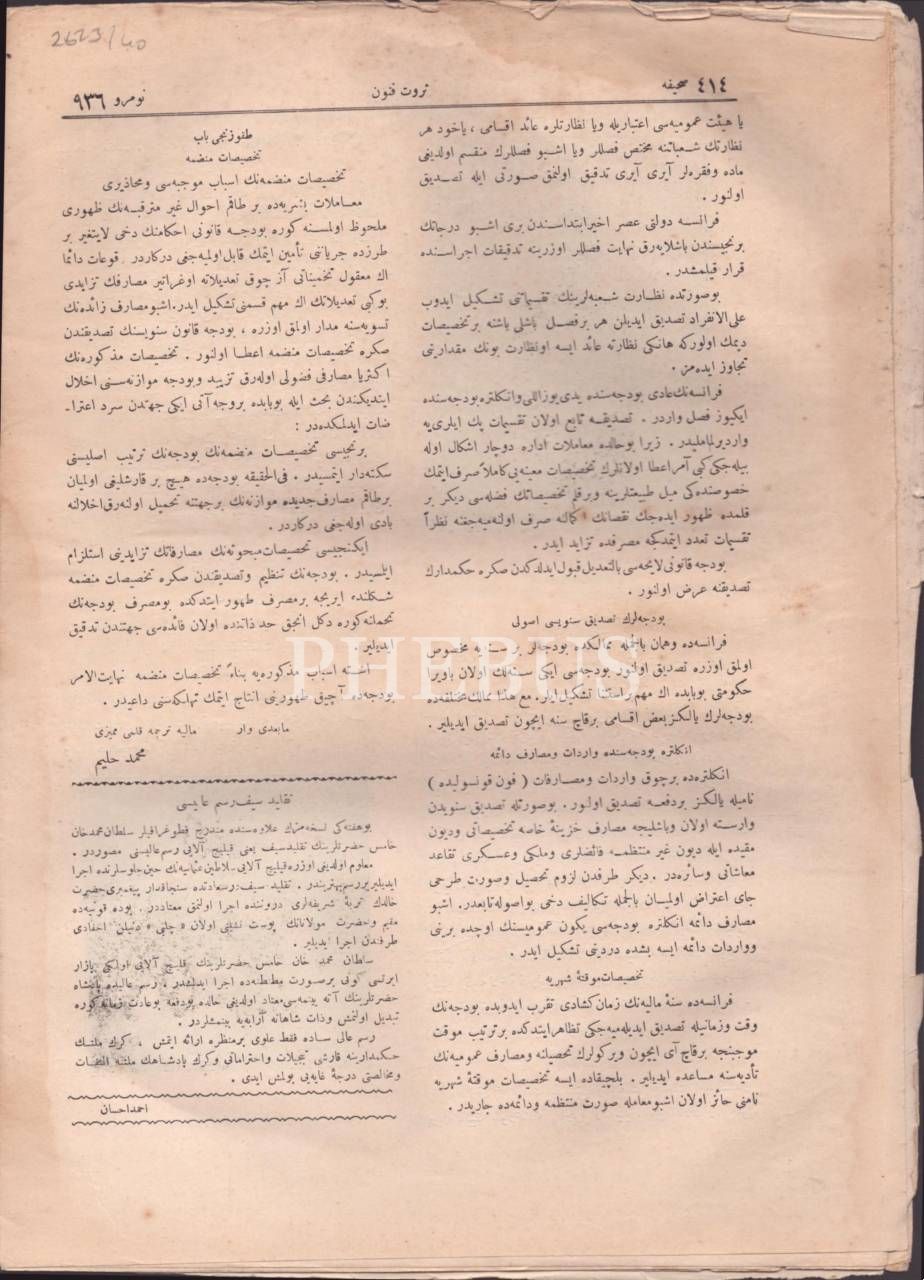 2623/40
٤١٤ صحیفه
ثروت فنون
نومرو ٩٣٦
یا هیئت عمومیه‌سی اعتباریله ویا نظارتلره عائد اقسامی ، یاخود هر
نظارتك شعباتنه مختص فصللر ویا اشبو فصللرك منقسم اولدیغی
ماده وفقره‌لر آیری آیری تدقیق اولنمق صورتی ایله تصدیق
اولنور .
فرانسه دولتی عصر اخیر ابتداسندن بری اشبو درجاتك
برنجیسندن باشلایه‌رق نهایت فصللر اوزرینه تدقیقات اجراسنده
قرار قیلمشدر .
بوصورتده نظارت شعبه‌لرینك تقسیماتنی تشكیل ایدوب
علی‌الانفراد تصدیق ایدیلن هر برفصل باشلی باشنه برتخصیصات
دیمك اولورکه هانکی نظارته عائد ایسه اونظارت بونك مقدارینی
تجاوز ایده‌مز .
فرانسه‌نك عادی بودجه‌سنده یدی‌یوزاللی وانکلتره بودجه‌سنده
ایکیوز فصل واردر . تصدیقه تابع اولان تقسیمات پك ایلری‌یه
واردیرلماملیدر . زیرا بوحالده معاملات اداره دوچار اشکال اوله
بیله‌جکی کبی آمر اعطا اولانلرك تخصیصات معینه‌یی کاملاً صرف ایتمك
خصوصنده‌کی میل طبیعتلرینه وبرقلم تخصیصاتك فضله‌سی دیکر بر
قلمده ظهور ایده‌جك نقصانك اکمالنه صرف اولنه‌میه‌جغنه نظراً
تقسیمات تعدد ایتمدکجه مصرفده تزاید ایدر .
بودجه قانونی لایحه‌سی بالتعدیل قبول ایدلدکدن صکره حکمدارك
تصدیقنه عرض اولنور .
بودجه‌لرك تصدیق سنویسی اصولی
فرانسه‌ده وهمان بالجمله ممالکده بودجه‌لر بر سنه‌یه مخصوص
اولمق اوزره تصدیق اولنور . بودجه‌سی ایکی سنه‌لك اولان باویرا
حکومتی بوبابده اك مهم راستثنا تشکیل ایلر . مع هذا ممالك مختلفه‌ده
بودجه‌لرك یالکز بعض اقسامی برقاچ سنه ایچون تصدیق ایدیلیر .
انکلتره بودجه‌سنده واردات ومصارف دائمه
انکلتره‌ده برچوق واردات ومصارفات ( فون قونسولیده )
نامیله یالکز بردفعه تصدیق اولنور . بوصورتله تصدیق سنویدن
وارسته اولان وباشلیجه مصارف خزینهٔ خاصه تخصیصاتی ودیون
مقیده ایله دیون غیر منتظمه فائضلری وملکی وعسکری تقاعد
معاشاتی وسائره‌در . دیکر طرفدن لزوم تحصیل وصورت طرحی
جای اعتراض اولمیان بالجمله تکالیف دخی بواصوله تابعدر . اشبو
مصارف دائمه انکلتره بودجه‌سی یکون عمومیسنك اوچده برینی
وواردات دائمه ایسه بشده دردینی تشکیل ایدر .
تخصیصات موقتهٔ شهریه
فرانسه‌ده سنهٔ مالیه‌نك زمان کشادی تقرب ایدوبده بودجه‌نك
وقت وزمانیله تصدیق ایدیله‌میه‌جکی تظاهر ایتدکده برترتیب موقت
موجبنجه برقاچ آی ایچون ویرکولرك تحصیلنه ومصارف عمومیه‌نك
تأدیه‌سنه مساعده ایدیلیر . بلچیقاده ایسه تخصیصات موقتهٔ شهریه
نامنی حائز اولان اشبو معامله صورت منتظمه ودائمه‌ده جاریدر .
طقوزنجی باب
تخصیصات منضمه
تخصیصات منضمه‌نك اسباب موجبه‌سی ومحاذیری
معاملات بشریه‌ده بر طاقم احوال غیر مترقبه‌نك ظهوری
ملحوظ اولمسنه کوره بودجه قانونی احکامنك دخی لایتغیر بر
طرزده جریاننی تأمین ایتمك قابل اولمیه‌جغی درکاردر . وقوعات دائما
اك معقول تخمیناتی آز چوق تعدیلاته اوغراتیر مصارفك تزایدی
بوکبی تعدیلاتك اك مهم قسمنی تشکیل ایدر. اشبو مصارف زائده‌نك
تسویه‌سنه مدار اولمق اوزره ، بودجه قانون سنویسنك تصدیقندن
صکره تخصیصات منضمه اعطا اولنور . تخصیصات مذکوره‌نك
اکثریا مصارفی فضولی اوله‌رق تزیید وبودجه موازنه‌سنی اخلال
ایتدیکندن بحث ایله بوبابده بروجه آتی ایکی جهتدن سرد اعترا-
ضات ایدلمکده‌در :
برنجیسی تخصیصات منضمه‌نك بودجه‌نك ترتیب اصلیسنی
سکته‌دار ایتمسیدر . فی‌الحقیقه بودجه‌ده هیچ بر قارشیلغی اولمیان
برطاقم مصارف جدیده موازنه‌نك برجهتنه تحمیل اولنه‌رق اخلالنه
بادی اوله‌جغی درکاردر .
ایکنجیسی تخصیصات مبحوثه‌نك مصارفاتك تزایدینی استلزام
ایلمسیدر . بودجه‌نك تنظیم وتصدیقندن صکره تخصیصات منضمه
شکلنده ایریجه برمصرف ظهور ایتدکده بومصرف بودجه‌نك
تحملنه کوره دکل انجق حد ذاتنده اولان فائده‌سی جهتندن تدقیق
ایدیلیر .
اشته اسباب مذکوره‌یه بناءً تخصیصات منضمه نهایت‌الامر
بودجه‌ده آچیق ظهورینی انتاج ایتمك تهلکه‌سنی داعیدر .
مابعدی وار
مالیه ترجمه قلمی ممیزی
محمد حلیم
تقلید سیف رسم عالیسی
بوهفته‌کی نسخه‌مزك علاوه‌سنده مندرج فطوغرافیلر سلطان محمدخان
خامس حضرتلرینك تقلیدسیف یعنی قیلیج آلایی رسم عالیسنی مصوردر .
معلوم اولدیغی اوزره قیلیج آلایی سلاطین عثمانیه‌نك حین جلوسلرنده اجرا
ایدیلیر بررسم بهتریندر . تقلید سیف درسعادتده سنجاقدار پیغمبری حضرت
خالدك تربهٔ شریفه‌لری دروننده اجرا اولنمق معتاددر . بوده قونیه‌ده
مقیم وحضرت مولانانك پوست نشینی اولان « چلبی » دنیلن احفادی
طرفندن اجرا ایدیلیر .
سلطان محمد خان خامس حضرتلرینك قلیج آلایی اولکی پازار
ایرتسی کونی برصورت مطنطنه‌ده اجرا ایدلمشدر . رسم عالیده پادشاه
حضرتلرینك آته بینمه‌سی معتاد اولدیغی حالده بودفعه بوعادت زمانه کوره
تبدیل اولنمش وذات شاهانه آرابه‌یه بینمشلردر .
رسم عالی ساده فقط علوی برمنظره ارائه ایتمش ، کرك ملتك
حکمدارینه قارشی تبجیلات واحتراماتی وکرك پادشاهك ملتنه التفات
ومخالصتی درجهٔ غایه‌یی بولمش ایدی .
احمد احسان
PHEBUS